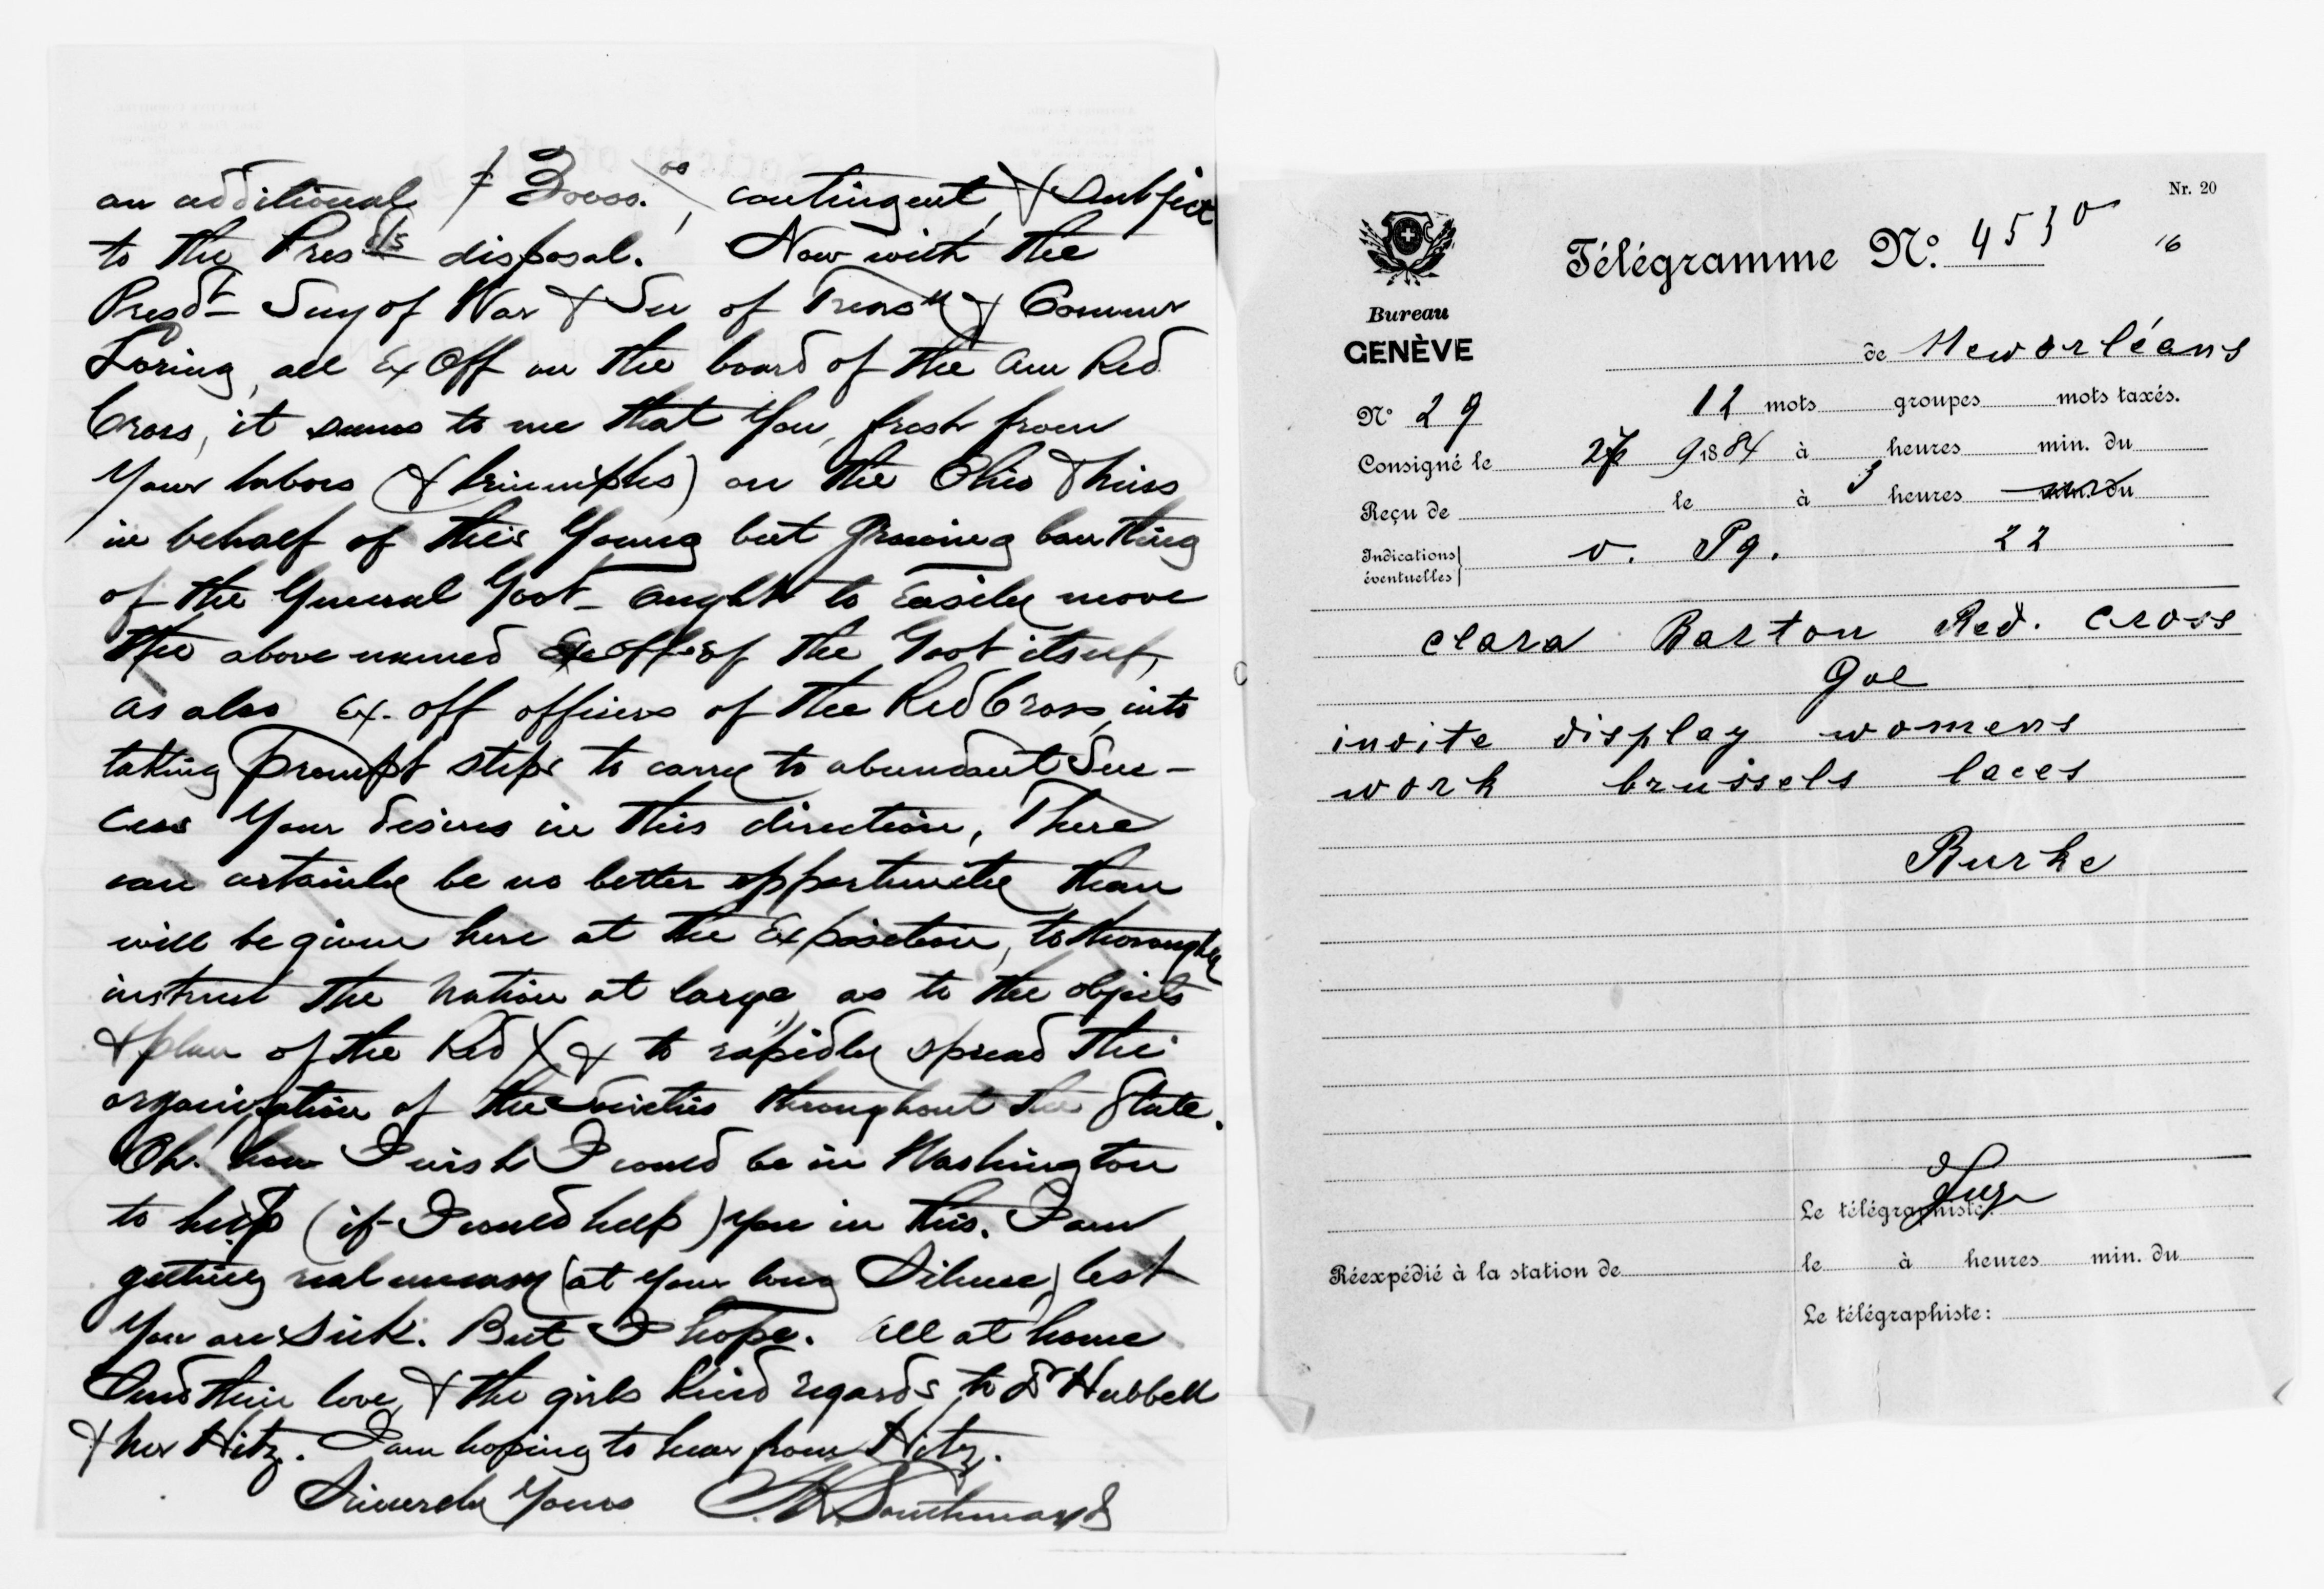 an additional $ 3000.00, contingent, & subject
to the Presdts disposal. Now with the
Presdt Secy of War & Sec of Treasy & Commr
Loring, all Ex Off on the board of the Am Red
Cross, it seems to me that You, fresh from
Your labors (& triumphs) on the Ohio & Miss
in behalf of this Young but growing bantling
of the General Govt - ought to easily move
the above named of the Govt itself,
as also Ex. off officers of the Red Cross, into
taking prompt steps to carry to abundant Suc-
cess Your desires in this direction, There
can certainly be no better opportunity than
will be given here at the Exposition, to thoroughly
instruct the Nation at large, as to the objects
& plan of the Red X & to rapidly spread the
organization of the Societies throughout the State.
Oh! how I wish I could be in Washington
to help (if I could help) you in this. I am
getting real uneasy (at your long Silence) lest
You are sick. But I hope. All at home
Send their love, & the girls kind regards to Dr Hubbell
& Hitz. I am hoping to hear from Hitz.
Sincerely Yours Southmayd
Nr. 20
Télégramme No. 4530
16
Bureau
GENÈVE
de Neworléans
No 29 12 mots groupes mots taxés.
Consigné le 27 9 1884 à heures min. du
Reçu de le à 3 heures min. du
Indications éventuelles v. Pg. 22
Clara Barton Red. Cross
Gve
invite display womens
work brussels laces
Burke
Le télégraphiste:
Réexpédié à la station de le à heures min. du
Le télégraphiste: